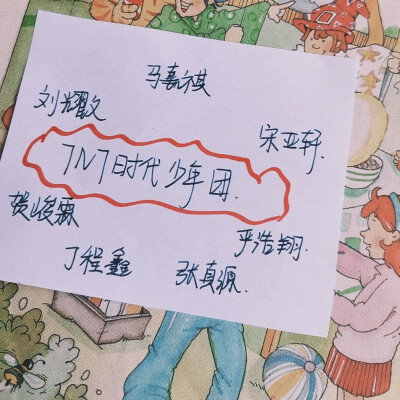 马嘉祺
刘耀文
宋亚轩
TNT时代少年团.
贺峻霖
严浩翔.
丁程鑫
张真源.